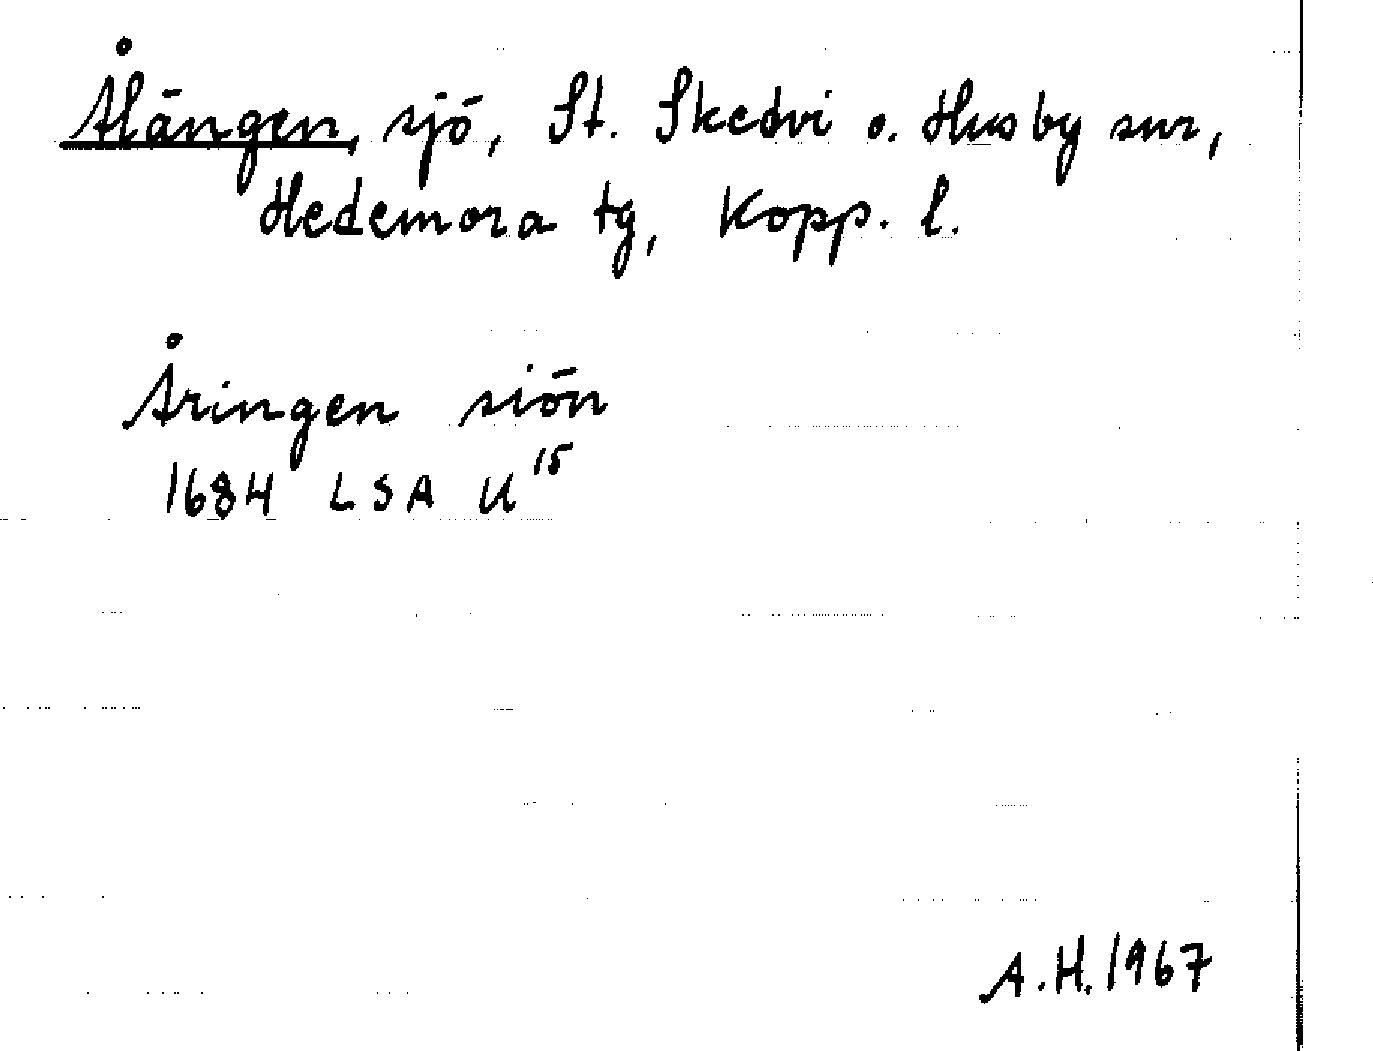 Ålängen, sjö, St. Skedvi o. Husby snr,
Hedemora tg, Kopp. l.
Åringen siön
1684 LSA U15
A.H. 1967